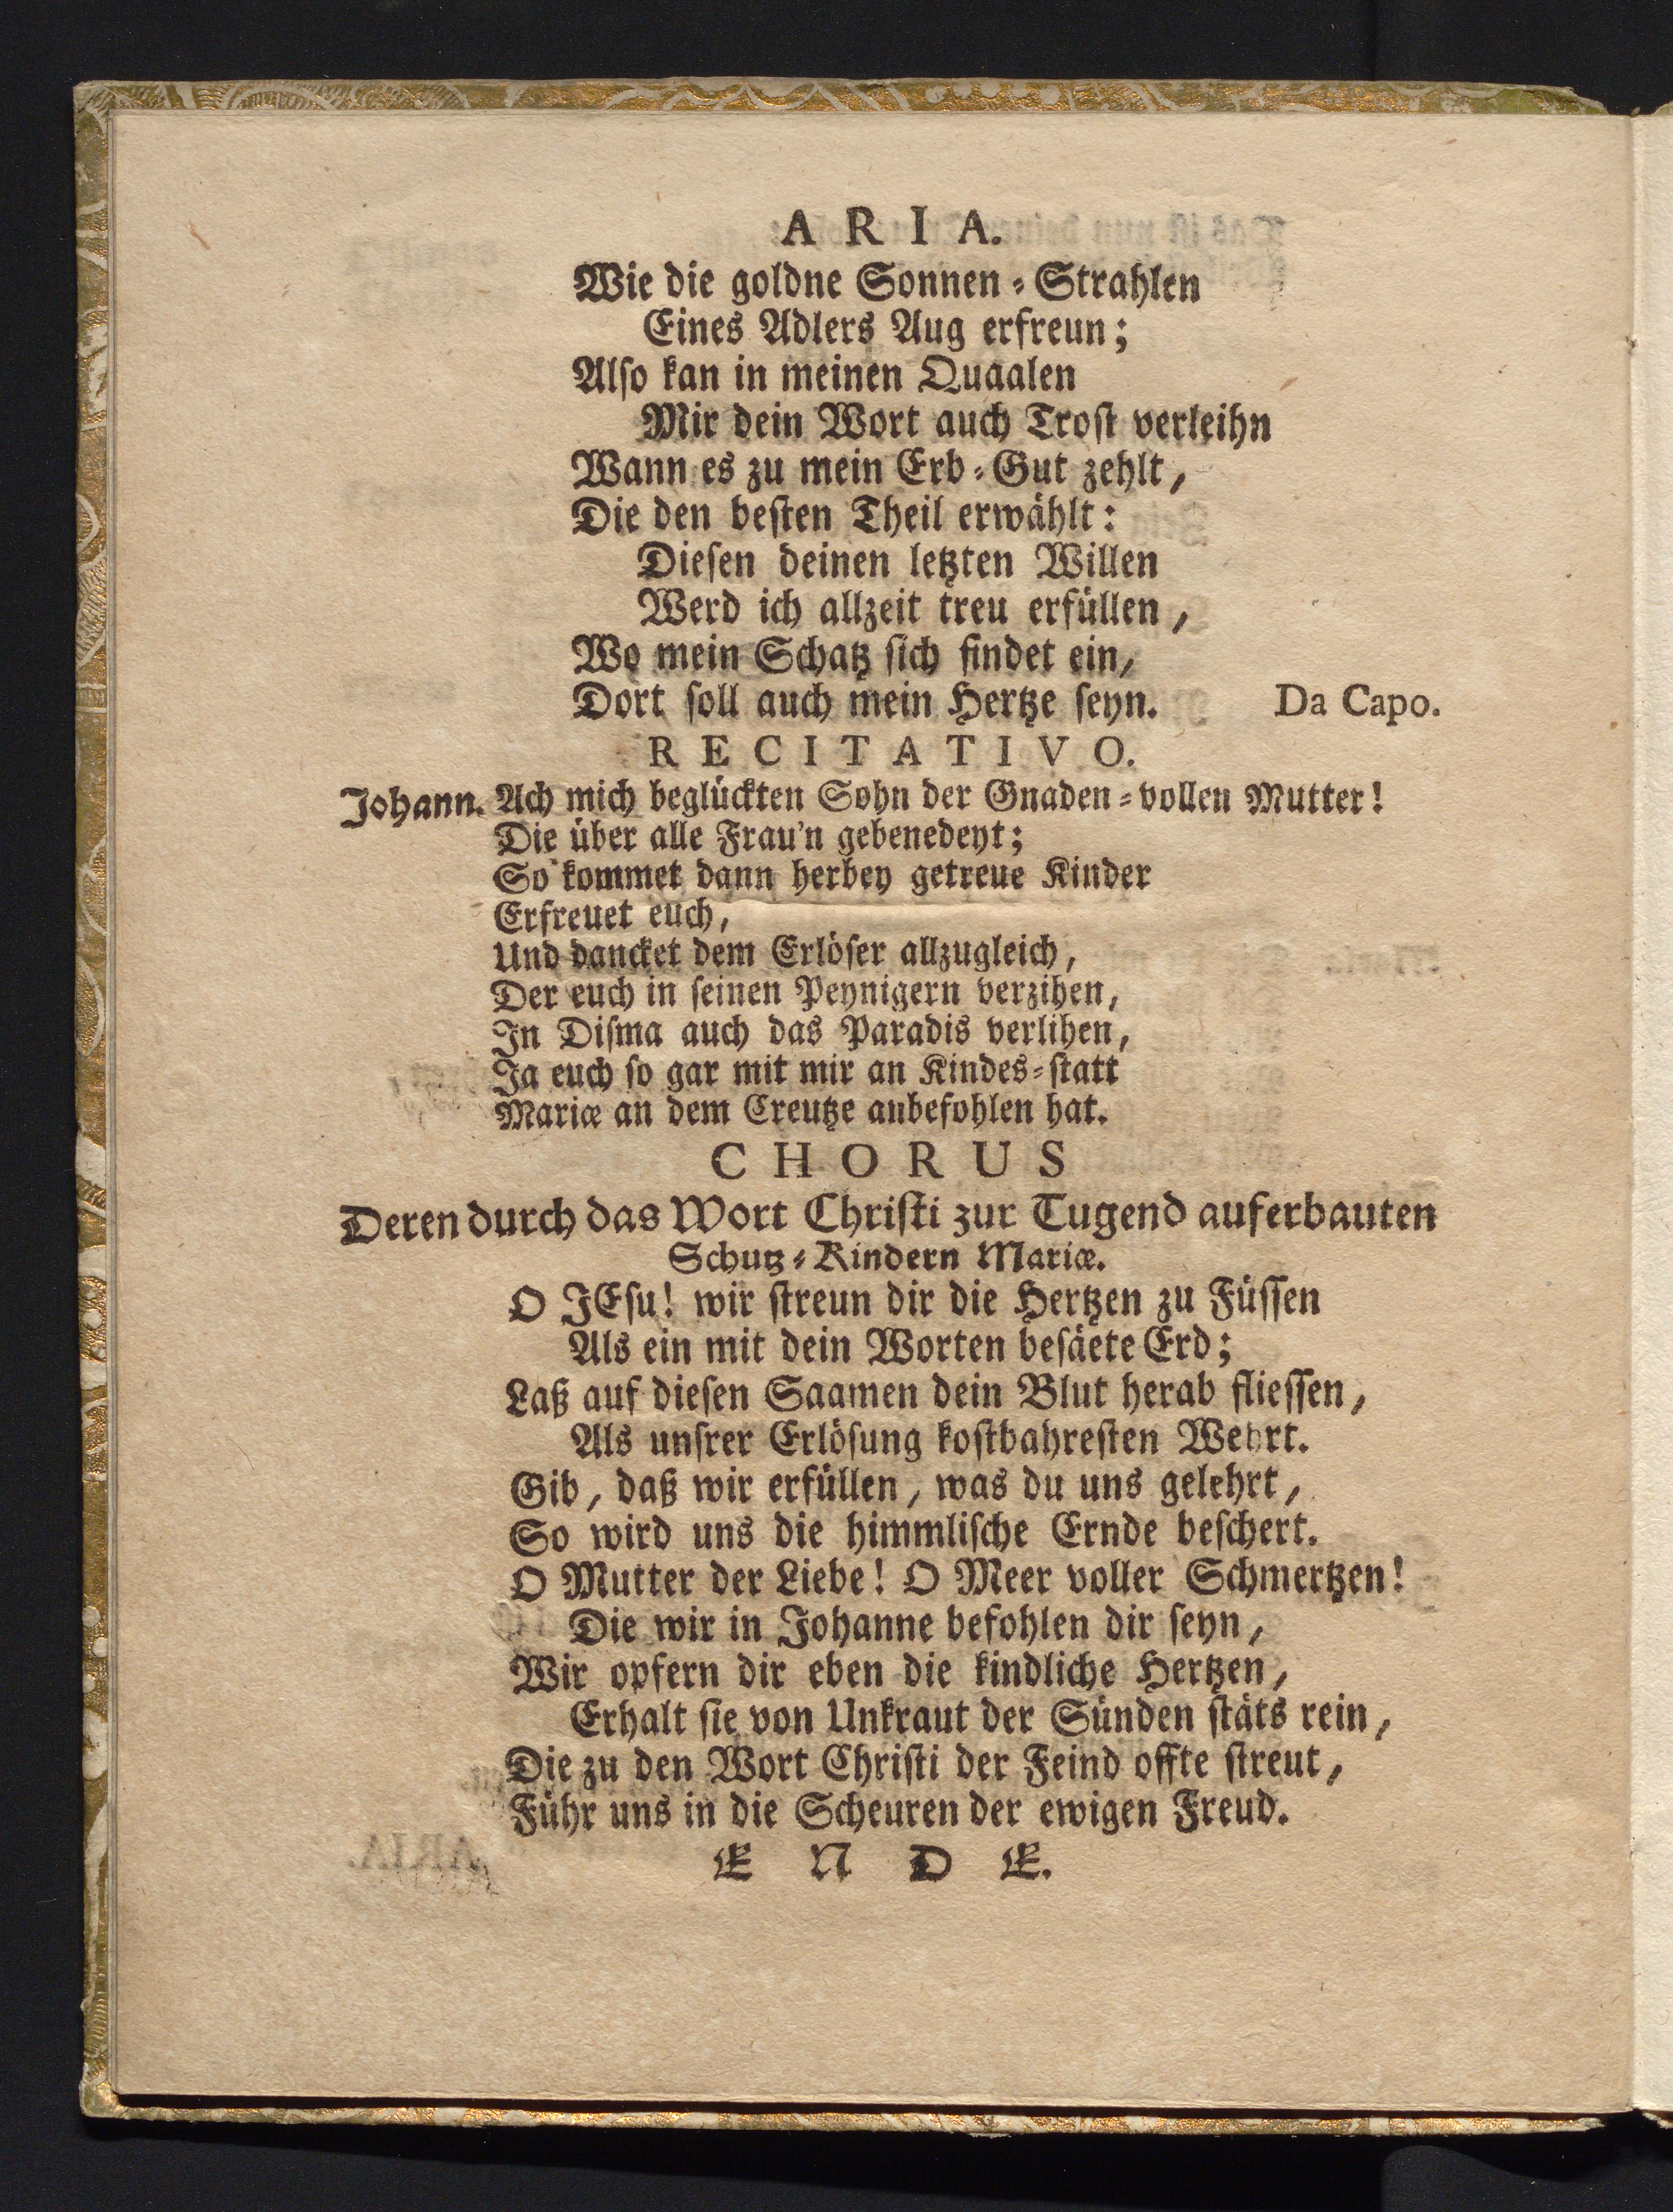 ARIA.
Wie die goldne Sonnen-Strahlen
Eines Adlers Aug erfreun;
Also kan in meinen Quaalen
Mir dein Wort auch Trost verleihn
Wann es zu mein Erb-Gut zehlt,
Die den besten Theil erwählt:
Diesen deinen letzten Willen
Werd ich allzeit treu erfüllen,
Wo mein Schatz sich findet ein,
Dort soll auch mein Hertze seyn. Da Capo.
RECITATIVO.
Johann. Ach mich beglückten Sohn der Gnaden-vollen Mutter!
Die über alle Frau'n gebenedeyt;
So kommet dann herbey getreue Kinder
Erfreuet euch,
Und dancket dem Erlöser allzugleich,
Der euch in seinen Peynigern verzihen,
In Disma auch das Paradis verlihen,
Ja euch so gar mit mir an Kindes-statt
Mariæ an dem Creutze anbefohlen hat.
CHORUS
Deren durch das Wort Christi zur Tugend auferbauten
Schutz-Kindern Mariæ.
O JEsu! wir streun dir die Hertzen zu Füssen
Als ein mit dein Worten besäete Erd;
Laß auf diesen Saamen dein Blut herab fliessen,
Als unsrer Erlösung kostbahresten Wehrt.
Gib, daß wir erfüllen, was du uns gelehrt,
So wird uns die himmlische Ernde beschert.
O Mutter der Liebe! O Meer voller Schmertzen!
Die wir in Johanne befohlen dir seyn,
Wir opfern dir eben die kindliche Hertzen,
Erhalt sie von Unkraut der Sünden stäts rein,
Die zu den Wort Christi der Feind offte streut,
Führ uns in die Scheuren der ewigen Freud.
ENDE.